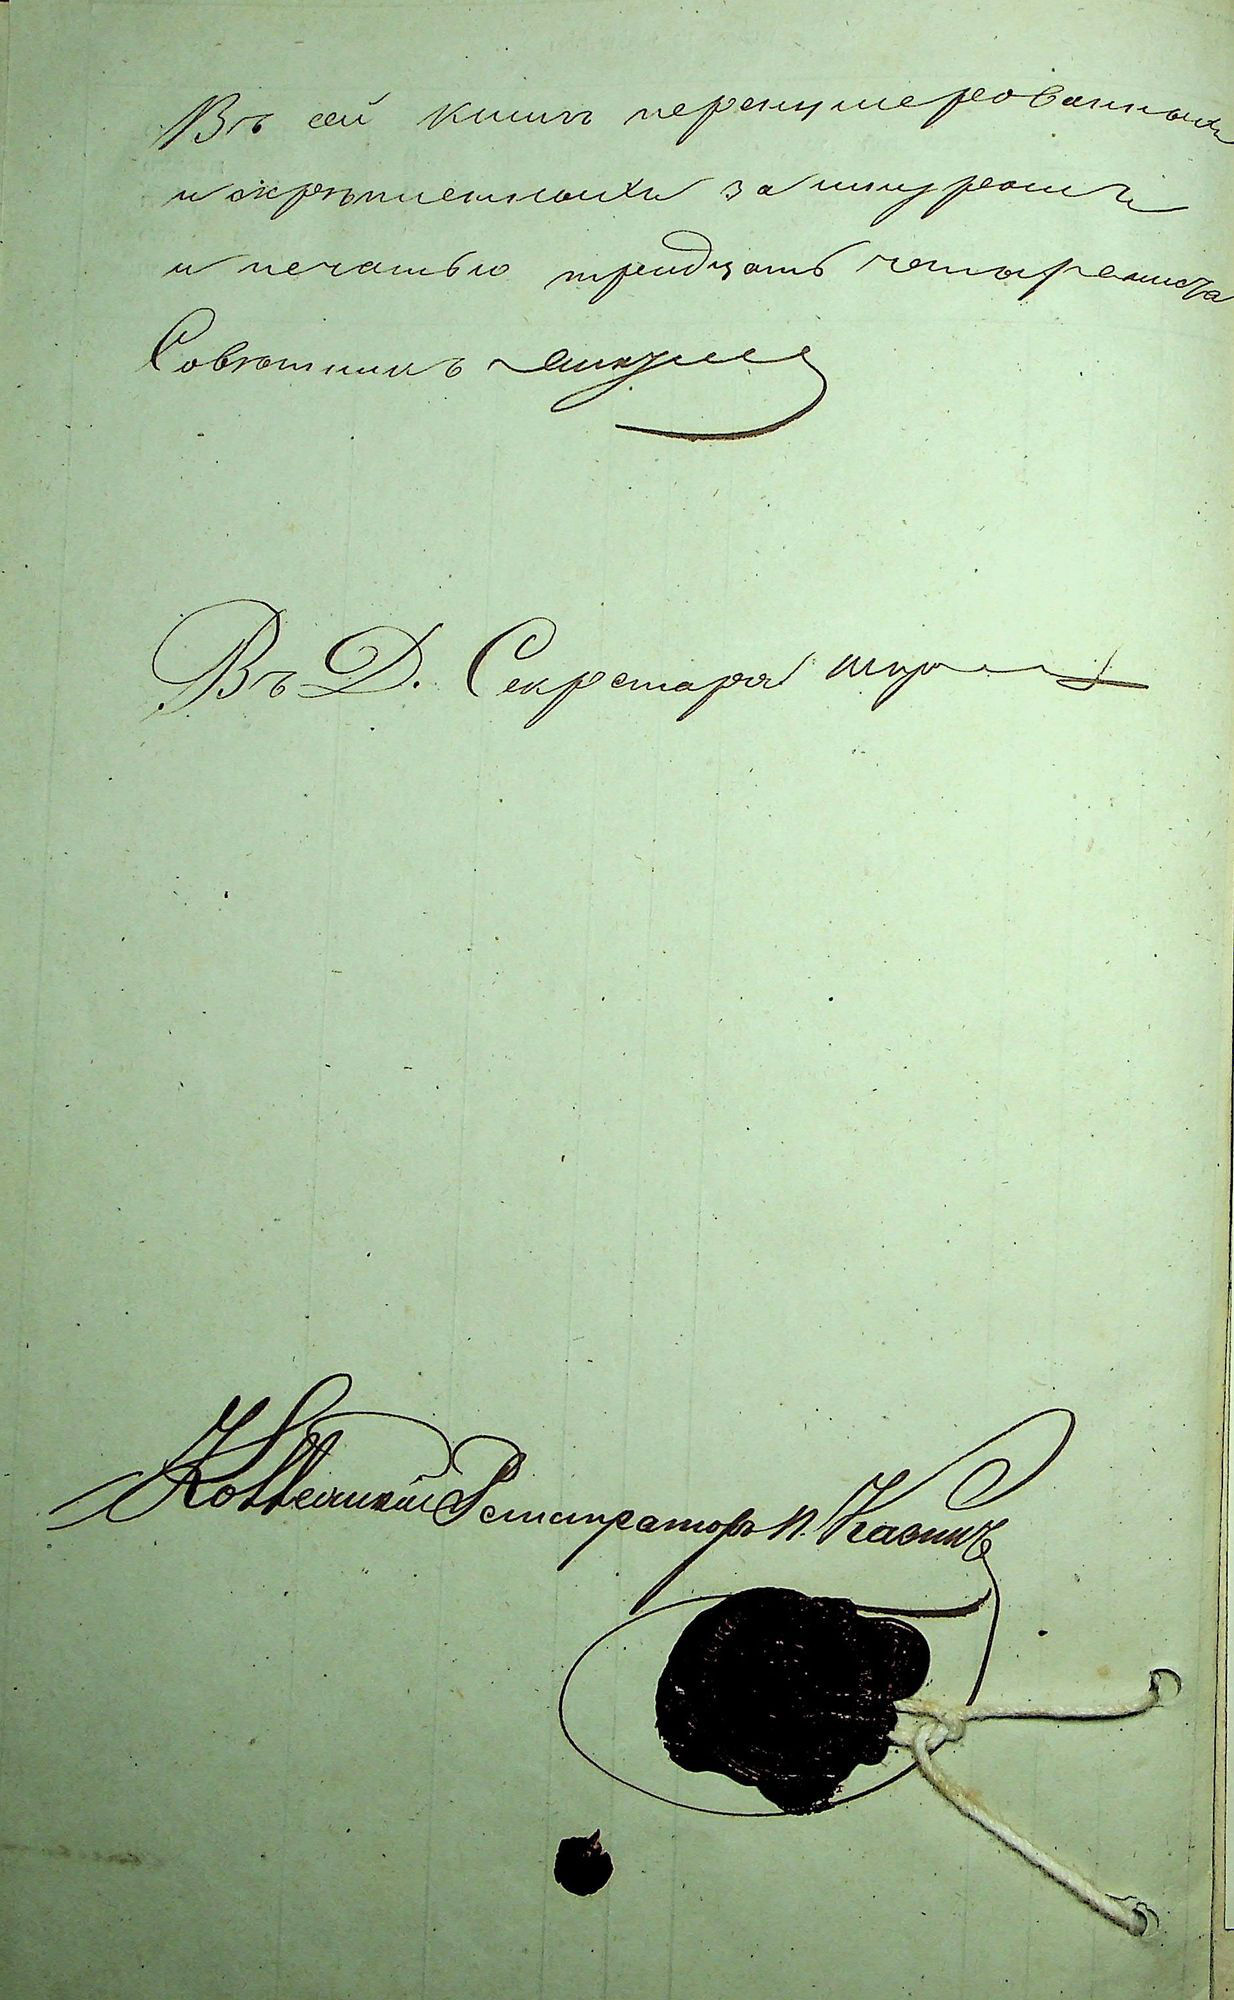 Въ сей книгѣ перенумерованныхъ
и скрѣпленныхъ за шнуромъ
и печатью тридцать четыре листа
Совѣтникъ
Въ Д. Секретаря
Коллежскій Регистраторъ